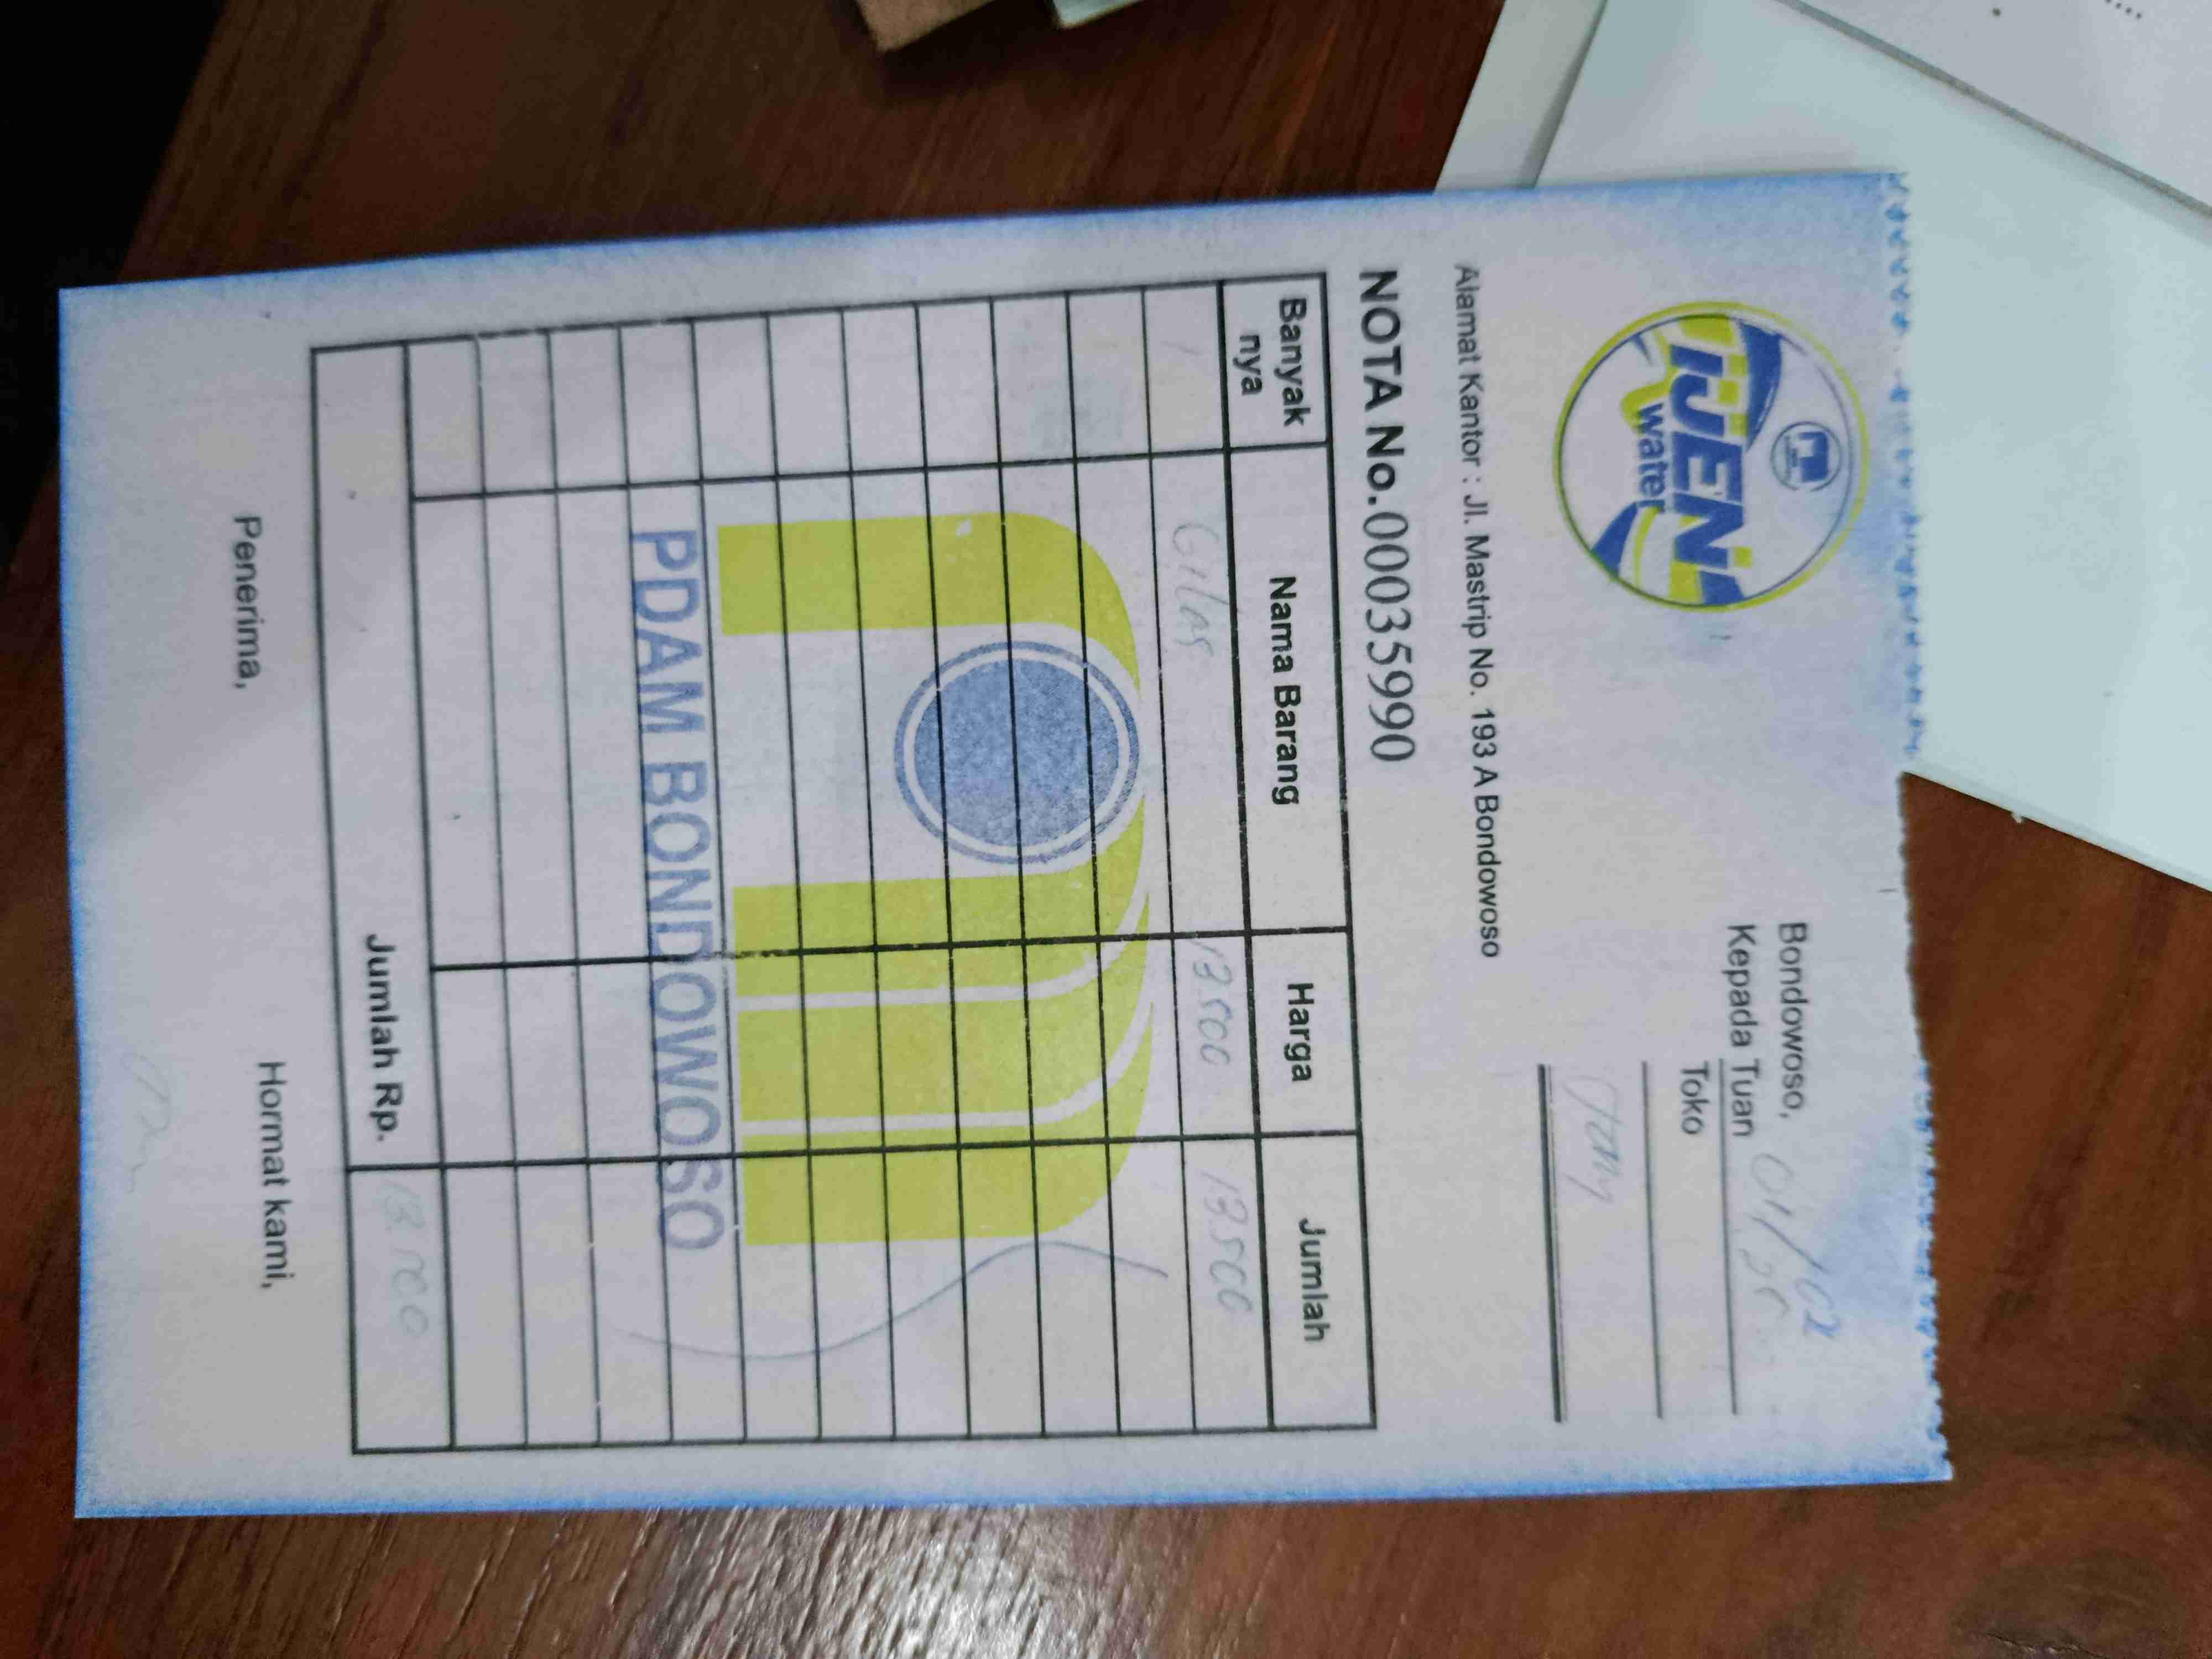 IJEN
water
Bondowoso, 01/02
Kepada Tuan
Toko
Alamat Kantor : Jl. Mastrip No. 193 A Bondowoso
NOTA No.000359990
Banyak nya Nama Barang Harga Jumlah
1 Gilas 13.500 13.500
PDAM BONDOWOSO
Jumlah Rp. 13.500
Penerima, Hormat kami,